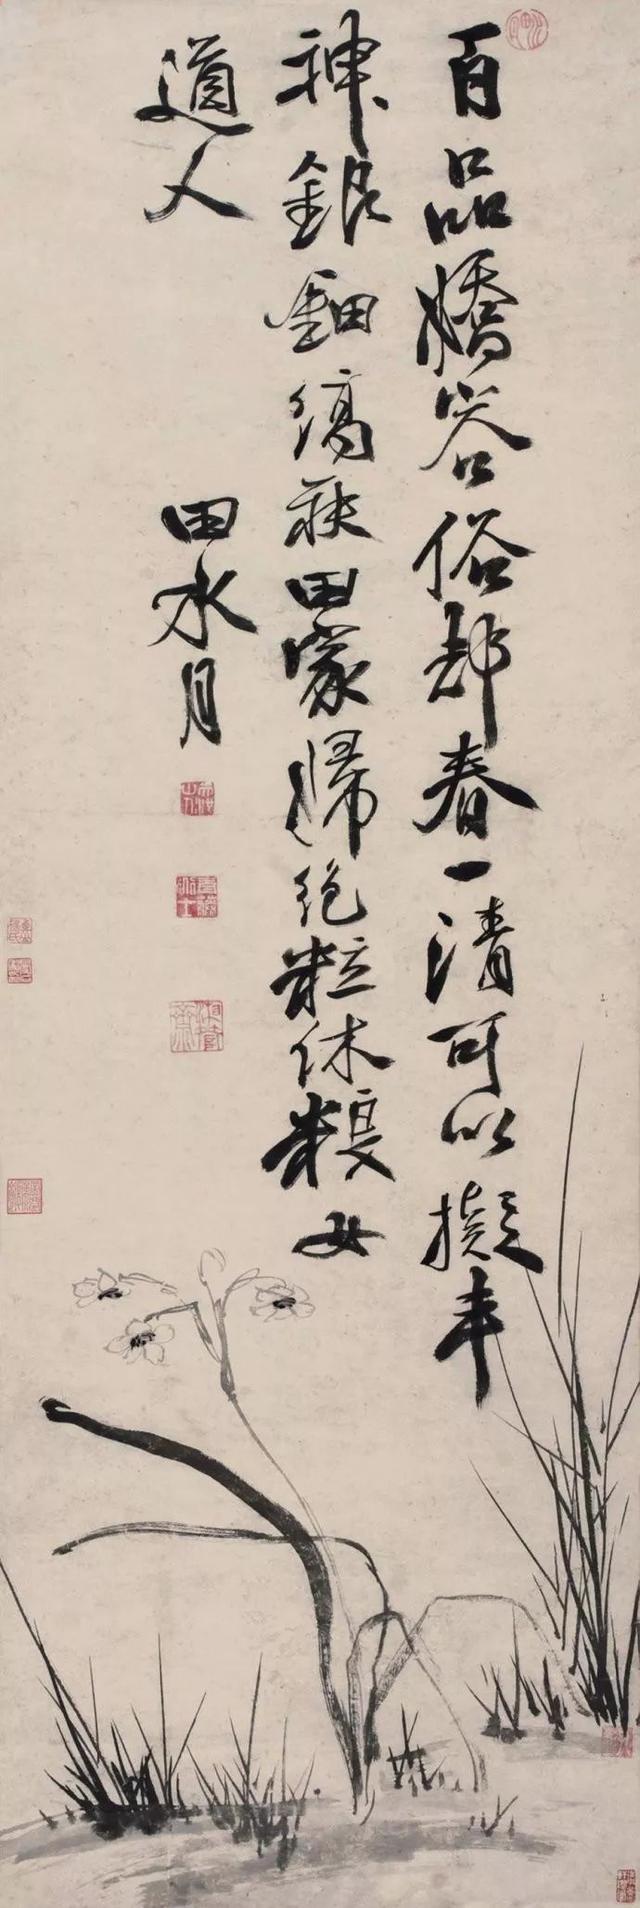 百品嬌容俗却春一清可以擬丰
神銀鈿縞袂田家婦絕粒休糧女
道人 田水月